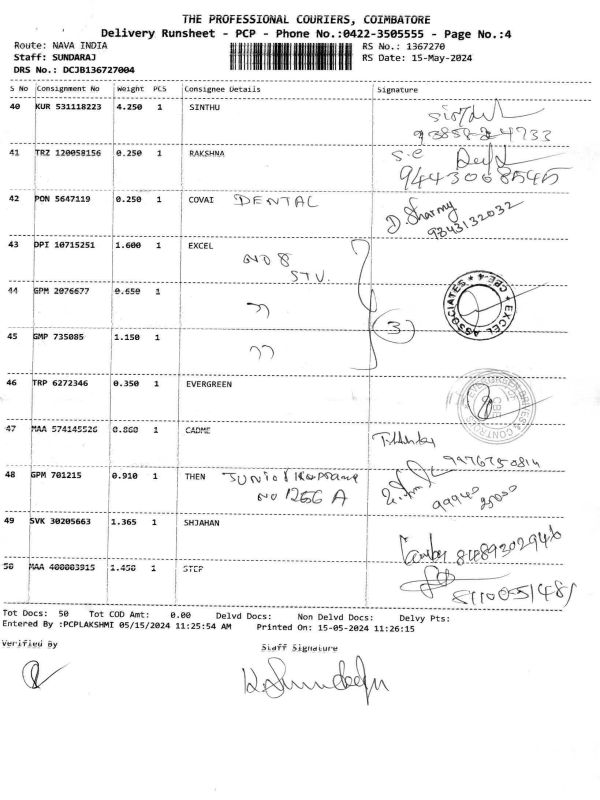 THE PROFESSIONAL COURIERS, COIMBATORE
Delivery Runsheet - PCP - Phone No.:0422-3505555 - Page No.:4
Route: NAVA INDIA
Staff: SUNDARAJ
DRS No.: DCJB136727004
RS No.: 1367270
RS Date: 15-May-2024
S No Consignment No Weight PCS Consignee Details Signature
40 KUR 531118223 4.250 1 SINTHU
41 TRZ 120058156 0.250 1 RAKSHNA
9443068545
42 PON 5647119 0.250 1 COVAI DENTAL
D. Sharmy
9843132032
43 DPI 10715251 1.600 1 EXCEL
NO 8
STV.
44 GPM 2076677 0.650 1 ''
3
EXCEL ASSOCIATES * CBE-4 *
45 GMP 735085 1.150 1 ''
46 TRP 6272346 0.350 1 EVERGREEN
CBE
47 MAA 574145526 0.860 1 CADME
9976750814
48 GPM 701215 0.910 1 THEN JUNIOR
NO 1256 A
99940
25000
49 SVK 30205663 1.365 1 SHJAHAN
8489302946
50 MAA 400003915 1.450 1 STEP
Tot Docs: 50 Tot COD Amt: 0.00 Delvd Docs: Non Delvd Docs: Delvy Pts:
Entered By :PCPLAKSHMI 05/15/2024 11:25:54 AM Printed On: 15-05-2024 11:26:15
Verified By
Staff Signature